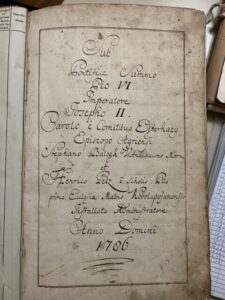 Sub
Pontifice Summo
Pio VI
Imperatore
Josepho II.
Carolo è Comitibus Eszterhazy
Episcopo Agriensi
Stephano Balogh
et
Henrico Pelz è Scholis Piis
primo Ecclesiæ Matris
Installato Administratore
Anno Domini
1786